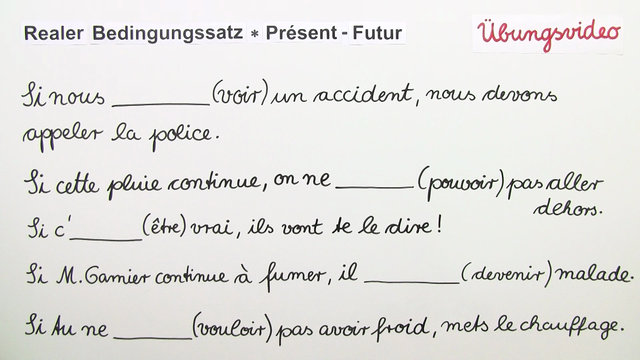 Realer Bedingungssatz * Présent - Futur
Übungsvideo
Si nous ________ (voir) un accident, nous devons
appeler la police.
Si cette pluie continue, on ne ________ (pouvoir) pas aller
dehors.
Si c'________ (être) vrai, ils vont te le dire!
Si M. Garnier continue à fumer, il ________ (devenir) malade.
Si tu ne ________ (vouloir) pas avoir froid, mets le chauffage.